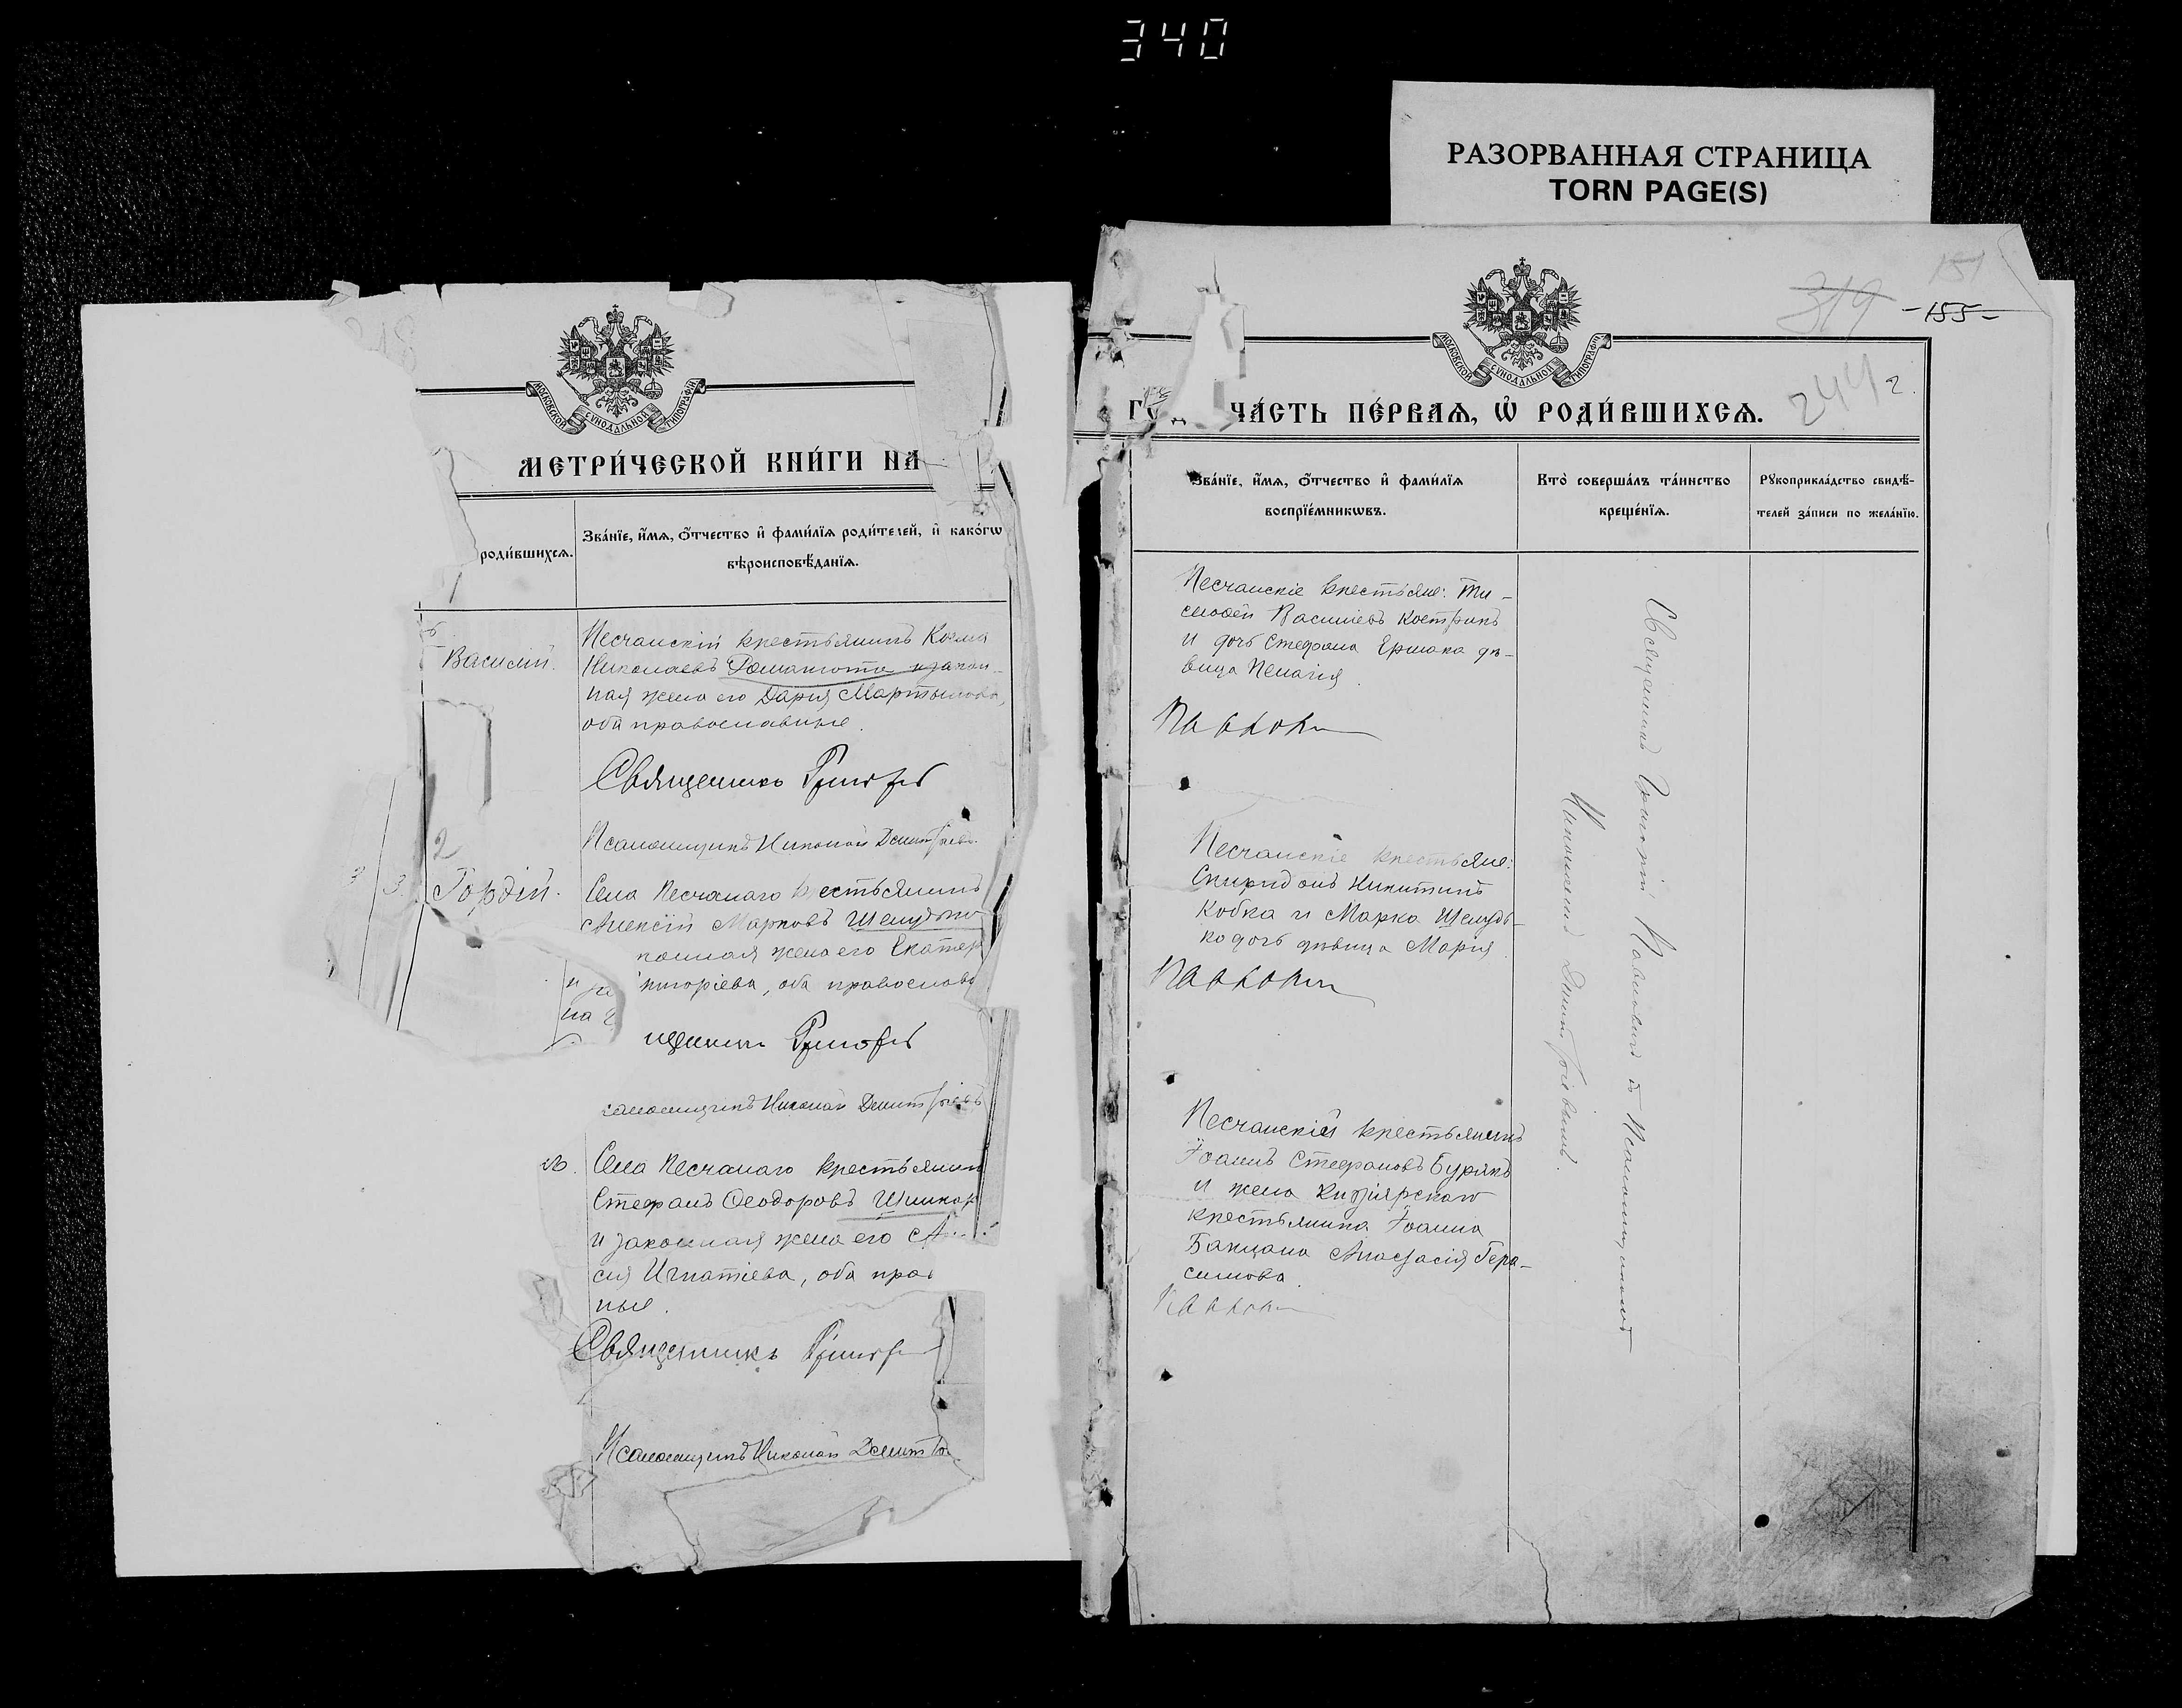 340
РАЗОРВАННАЯ СТРАНИЦА
TORN PAGE(S)
МОСКОВСКОЙ СѴНОДАЛЬНОЙ ТИПОГРАФІИ
МЕТРИ́ЧЕСКОЙ КНИ́ГИ НА
роди́вшихсѧ.
Зва́нїе, и҆́мѧ, ѻ҆́тчество и҆ фами́лїѧ роди́телей, и҆ како́гѡ
вѣроисповѣ́данїѧ.
1
Василій.
Песчанскій крестьянинъ Косма
Николаевъ
ная жена его Дарія Мартынова,
оба православные.
Священникъ Григорій
Псаломщикъ Николай Дмитріевъ
2
3 3. Гордій.
Села Песчанаго крестьянинъ
Алексій Марковъ Шелудько
и за конная жена его Екатер
на Григоріева, оба православ
щенникъ Григорій
саломщикъ Николай Дмитріевъ
Села Песчанаго крестьянинъ
Стефанъ Ѳеодоровъ Шинкар
и законная жена его
сія Игнатіева, оба прав
ные.
Священникъ Григор
Псаломщикъ Николай Дмит
319 151
-155-
МОСКОВСКОЙ СѴНОДАЛЬНОЙ ТИПОГРАФІИ
ЧА́СТЬ ПЕ́РВАѦ, Ѡ҆ РОДИ́ВШИХСѦ.
244 2.
Зва́нїе, и҆́мѧ, ѻ҆́тчество и҆ фами́лїѧ
воспрїе́мникѡвъ.
Кто̀ соверша́лъ та́инство
креще́нїѧ.
Рꙋкоприкла́дство свидѣ́-
телей за́писи по жела́нїю.
Песчанскіе крестьяне: Ти-
моѳей Васильевъ Костринъ
и дочь Стефана Ершака дѣ-
вица Пелагія.
Песчанскіе крестьяне:
Спиридонъ Никитинъ
Кобка и Марка Шелудь-
ко дочь дѣвица Марія.
Песчанскій крестьянинъ
Іоаннъ Стефановъ Бурякъ
и жена Китріярскаго
крестьянина Іоанна
Бакцана Анастасія Гера-
симова.
Священникъ Григорій Павловичъ съ Псаломщикомъ
Николаемъ Дмитріевымъ.